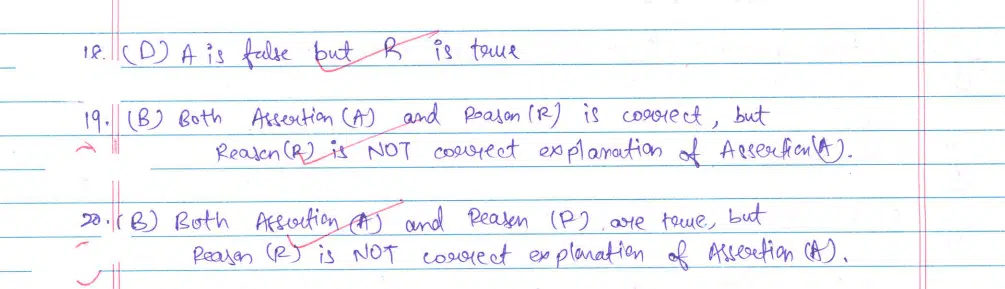 18. (D) A is false but R is true
19. (B) Both Assertion (A) and Reason (R) is correct, but
Reason (R) is NOT correct explanation of Assertion (A).
20. (B) Both Assertion (A) and Reason (R) are true, but
Reason (R) is NOT correct explanation of Assertion (A).